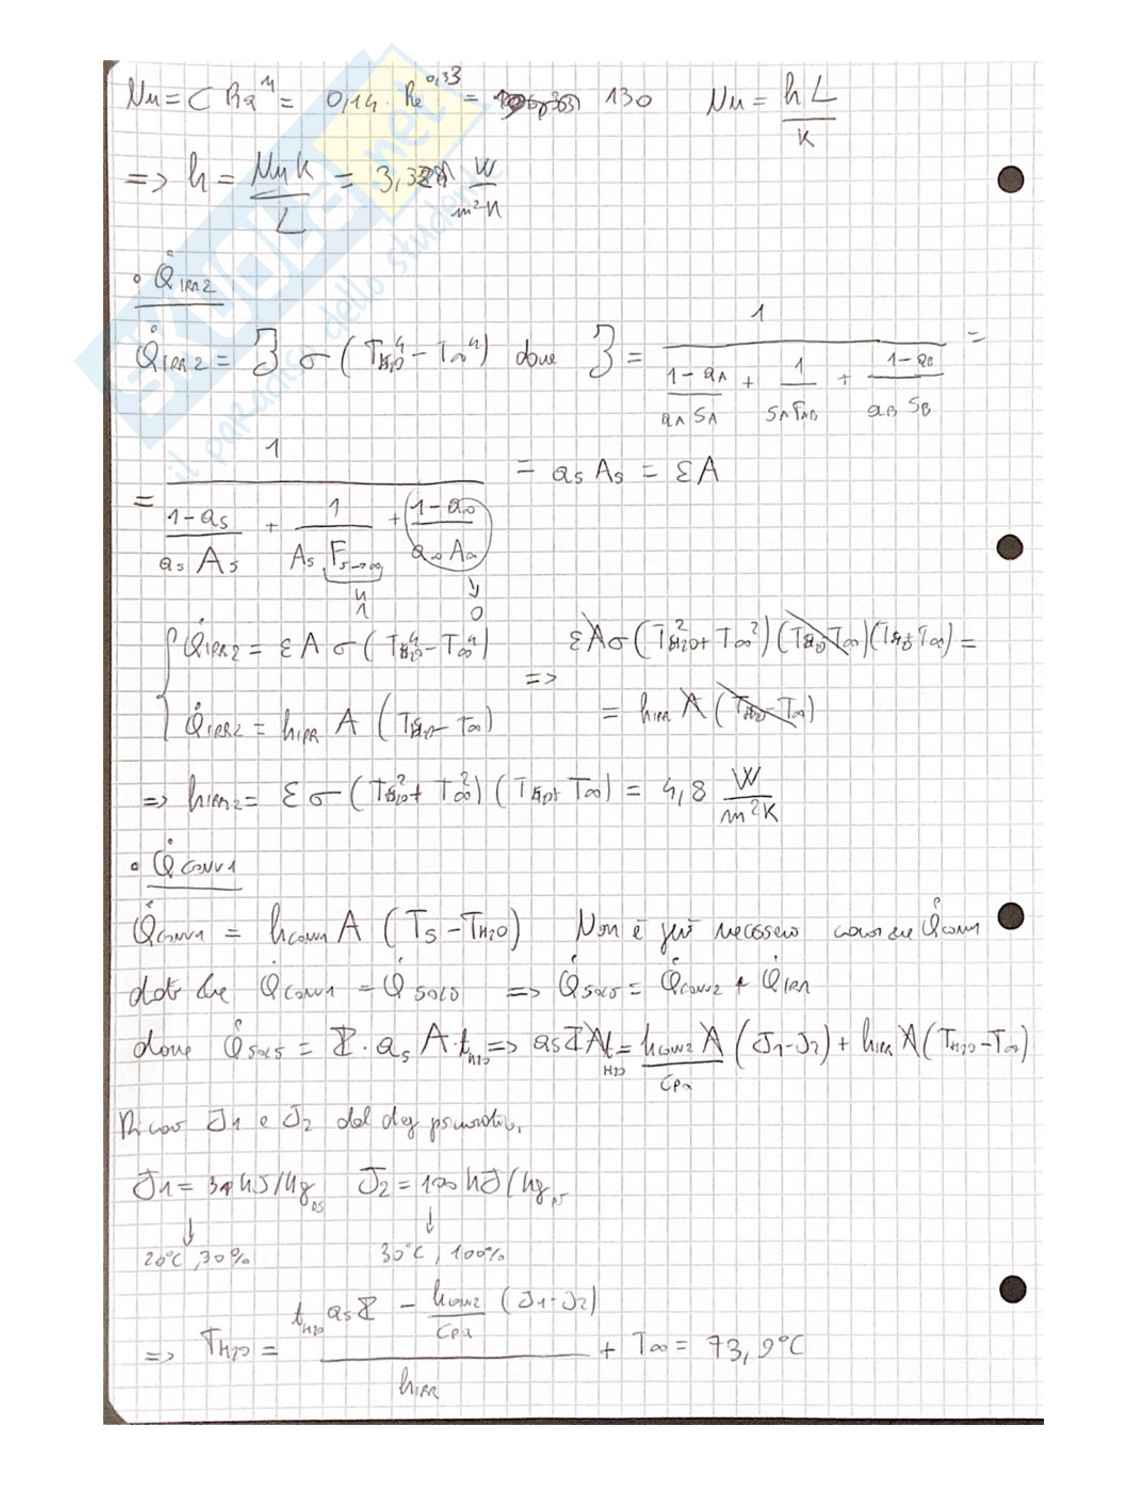 Nu = C Ra^n = 0,14 · Re^0,33 = 130 Nu = hL/K
=> h = Nu K/L = 3,3 W/m²K
• Q̇IRR2
Q̇IRR2 = ℨ σ (TH2O⁴ - T∞⁴) dove ℨ = 1/((1-aA)/(aA SA) + 1/(SA FAB) + (1-aB)/(aB SB)) =
= 1/((1-as)/(as As) + 1/(As Fs→∞) + (1-a∞)/(a∞ A∞)) = as As = εA
1 0
Q̇IRR2 = εAσ(TH2O⁴ - T∞⁴) => εAσ(TH2O² + T∞²)(TH2O - T∞)(TH2O + T∞) =
Q̇IRR2 = hIRR A (TH2O - T∞) = hIRR A (TH2O - T∞)
=> hIRR2 = εσ(TH2O² + T∞²)(TH2O + T∞) = 4,8 W/m²K
• Q̇CONV1
Q̇CONV1 = hCONV1 A (TS - TH2O) Non è più necessario Q̇CONV1
dato che Q̇CONV1 = Q̇SOLE => Q̇SOLE = Q̇CONV2 + Q̇IRR
dove Q̇SOLE = I · as A · tH2O => as I A tH2O = hCONV2 A/cpa (J1-J2) + hIRR A (TH2O - T∞)
Ricavo J1 e J2 dal diag psicrometrico.
J1 = kJ/kg J2 = 100 kJ/kg
20°C, 30% 30°C, 100%
=> TH2O = (tH2O as I - hCONV2/cpa (J1-J2))/hIRR + T∞ = 73,9°C
SKUOLA.net
il paradiso dello studente